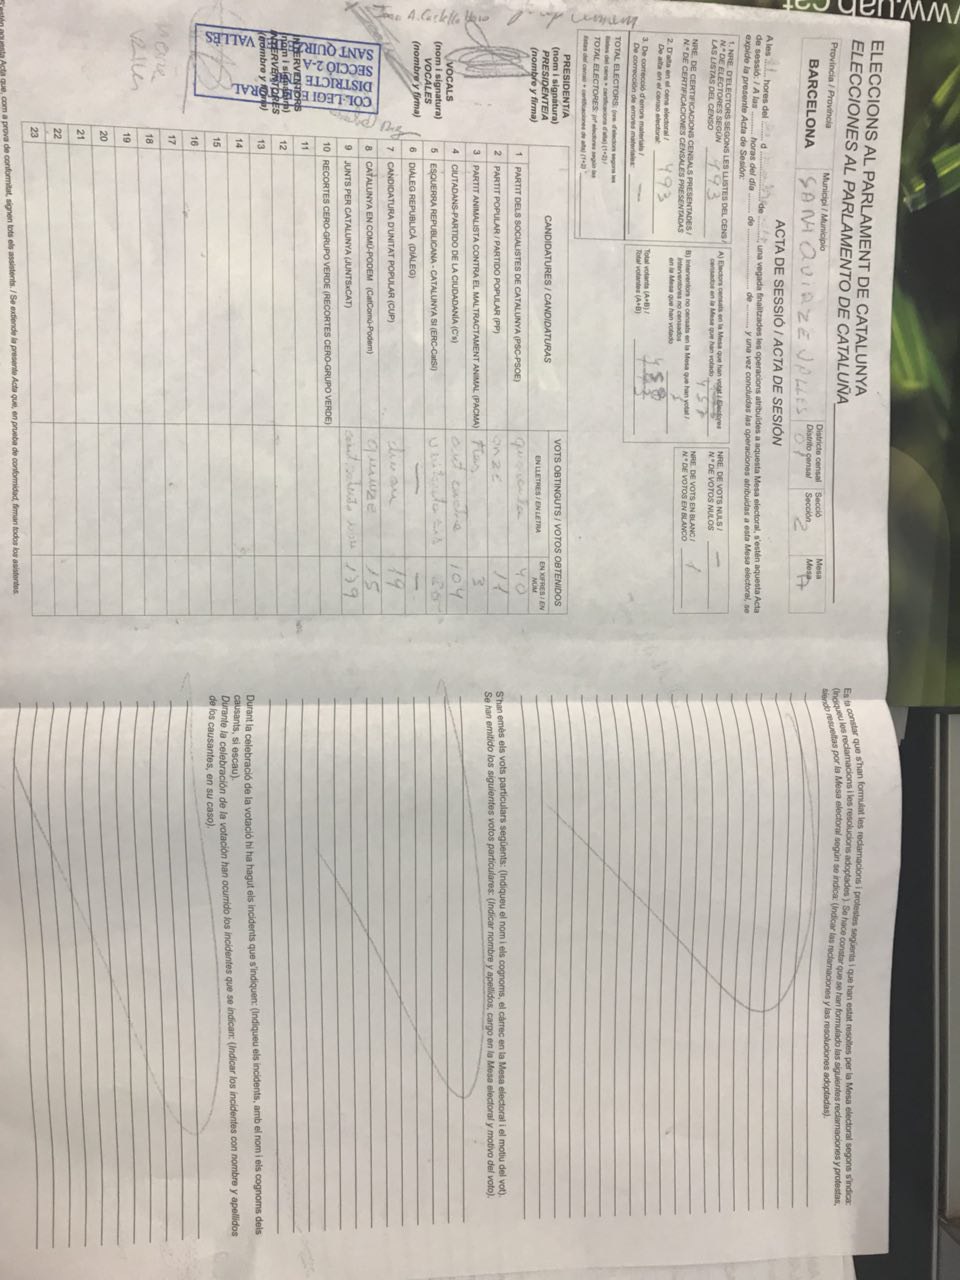 www.uab.cat
ELECCIONS AL PARLAMENT DE CATALUNYA
ELECCIONES AL PARLAMENTO DE CATALUÑA
Província / Provincia
BARCELONA
Municipi / Municipio
SANT QUIRZE VALLES
Districte censal
Distrito censal
01
Secció
Sección
2
Mesa
Mesa
A
ACTA DE SESSIÓ / ACTA DE SESIÓN
A les hores del d de una vegada finalitzades les operacions atribuïdes a aquesta Mesa electoral, s'estén aquesta Acta
de sessió. / A las horas del día de de y una vez concluidas las operaciones atribuidas a esta Mesa electoral, se
expide la presente Acta de Sesión:
1. NRE. D'ELECTORS SEGONS LES LLISTES DEL CENS /
N.º DE ELECTORES SEGÚN
LAS LISTAS DEL CENSO
493
NRE. DE CERTIFICACIONS CENSALS PRESENTADES /
N.º DE CERTIFICACIONES CENSALES PRESENTADAS
2. D'alta en el cens electoral /
De alta en el censo electoral:
493
3. De correcció d'errors materials /
De corrección de errores materiales:
—
A) Electors censats en la Mesa que han votat / Electores
censados en la Mesa que han votado
B) Interventors no censats en la Mesa que han votat /
Interventores no censados
en la Mesa que han votado
Total votants (A+B) /
Total votantes (A+B)
NRE. DE VOTS NULS /
N.º DE VOTOS NULOS
—
NRE. DE VOTS EN BLANC /
N.º DE VOTOS EN BLANCO
1
CANDIDATURES / CANDIDATURAS
VOTS OBTINGUTS / VOTOS OBTENIDOS
EN LLETRES / EN LETRA
EN XIFRES / EN NÚM.
1 PARTIT DELS SOCIALISTES DE CATALUNYA (PSC-PSOE) quaranta 40
2 PARTIT POPULAR / PARTIDO POPULAR (PP) onze 11
3 PARTIT ANIMALISTA CONTRA EL MALTRACTAMENT ANIMAL (PACMA) tres 3
4 CIUTADANS-PARTIDO DE LA CIUDADANÍA (C's) cent quatre 104
5 ESQUERRA REPUBLICANA - CATALUNYA SÍ (ERC-CatSí)
6 DIÀLEG REPUBLICÀ (DIÀLEG) — —
7 CANDIDATURA D'UNITAT POPULAR (CUP) dinou 19
8 CATALUNYA EN COMÚ-PODEM (CatComú-Podem) quinze 15
9 JUNTS PER CATALUNYA (JUNTSxCAT) cent setanta nou 179
10 RECORTES CERO-GRUPO VERDE (RECORTES CERO-GRUPO VERDE)
11
12
13
14
15
16
17
18
19
20
21
22
23
PRESIDENT/A
(nom i signatura)
PRESIDENTE/A
(nombre y firma)
VOCALS
(nom i signatura)
VOCALES
(nombre y firma)
INTERVENTORS
INTERVENTORES
(nombre y firma)
COL·LEGI ELECTORAL
DISTRICTE
SECCIÓ 2-A
SANT QUIRZE VALLES
S'estén aquesta Acta que, com a prova de conformitat, signen tots els assistents. / Se extiende la presente Acta que, en prueba de conformidad, firman todos los asistentes.
Es fa constar que s'han formulat les reclamacions i protestes següents i que han estat resoltes per la Mesa electoral segons s'indica:
(Indiqueu les reclamacions i les resolucions adoptades). Se hace constar que se han formulado las siguientes reclamaciones y protestas,
siendo resueltas por la Mesa electoral según se indica: (Indicar las reclamaciones y las resoluciones adoptadas).
S'han emès els vots particulars següents: (Indiqueu el nom i els cognoms, el càrrec en la Mesa electoral i el motiu del vot).
Se han emitido los siguientes votos particulares: (Indicar nombre y apellidos, cargo en la Mesa electoral y motivo del voto).
Durant la celebració de la votació hi ha hagut els incidents que s'indiquen: (Indiqueu els incidents, amb el nom i els cognoms dels
causants, si escau).
Durante la celebración de la votación han ocurrido los incidentes que se indican: (Indicar los incidentes con nombre y apellidos
de los causantes, en su caso).